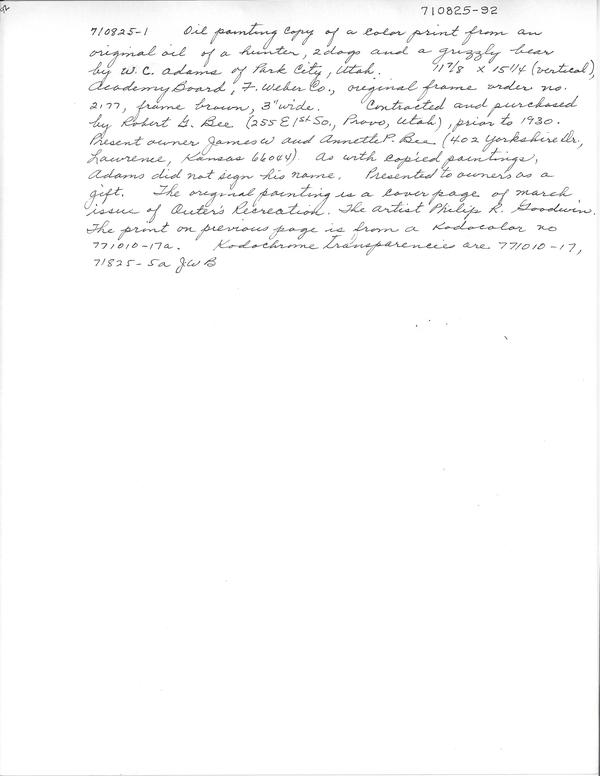 710825-92
710825-1 Oil painting copy of a color print from an
original oil of a hunter, 2 dogs and a grizzly bear
by W. C. Adams of Park City, Utah. 11 7/8 x 15 1/4 (vertical),
Academy Board, F. Weber Co., original frame order no.
2177, frame brown, 3" wide. Contracted and purchased
by Robert G. Bee (255 E 1st So., Provo, Utah), prior to 1930.
Present owner James W and Annette P. Bee (402 Yorkshire Dr.,
Lawrence, Kansas 66044). As with copied paintings,
Adams did not sign his name. Presented to owners as a
gift. The original painting is a cover page of march
issue of Outer's Recreation. The artist Philip R. Goodwin.
The print on previous page is from a Kodocolor no
771010-17a. Kodochrome transparencies are 771010-17,
71825-5a JWB